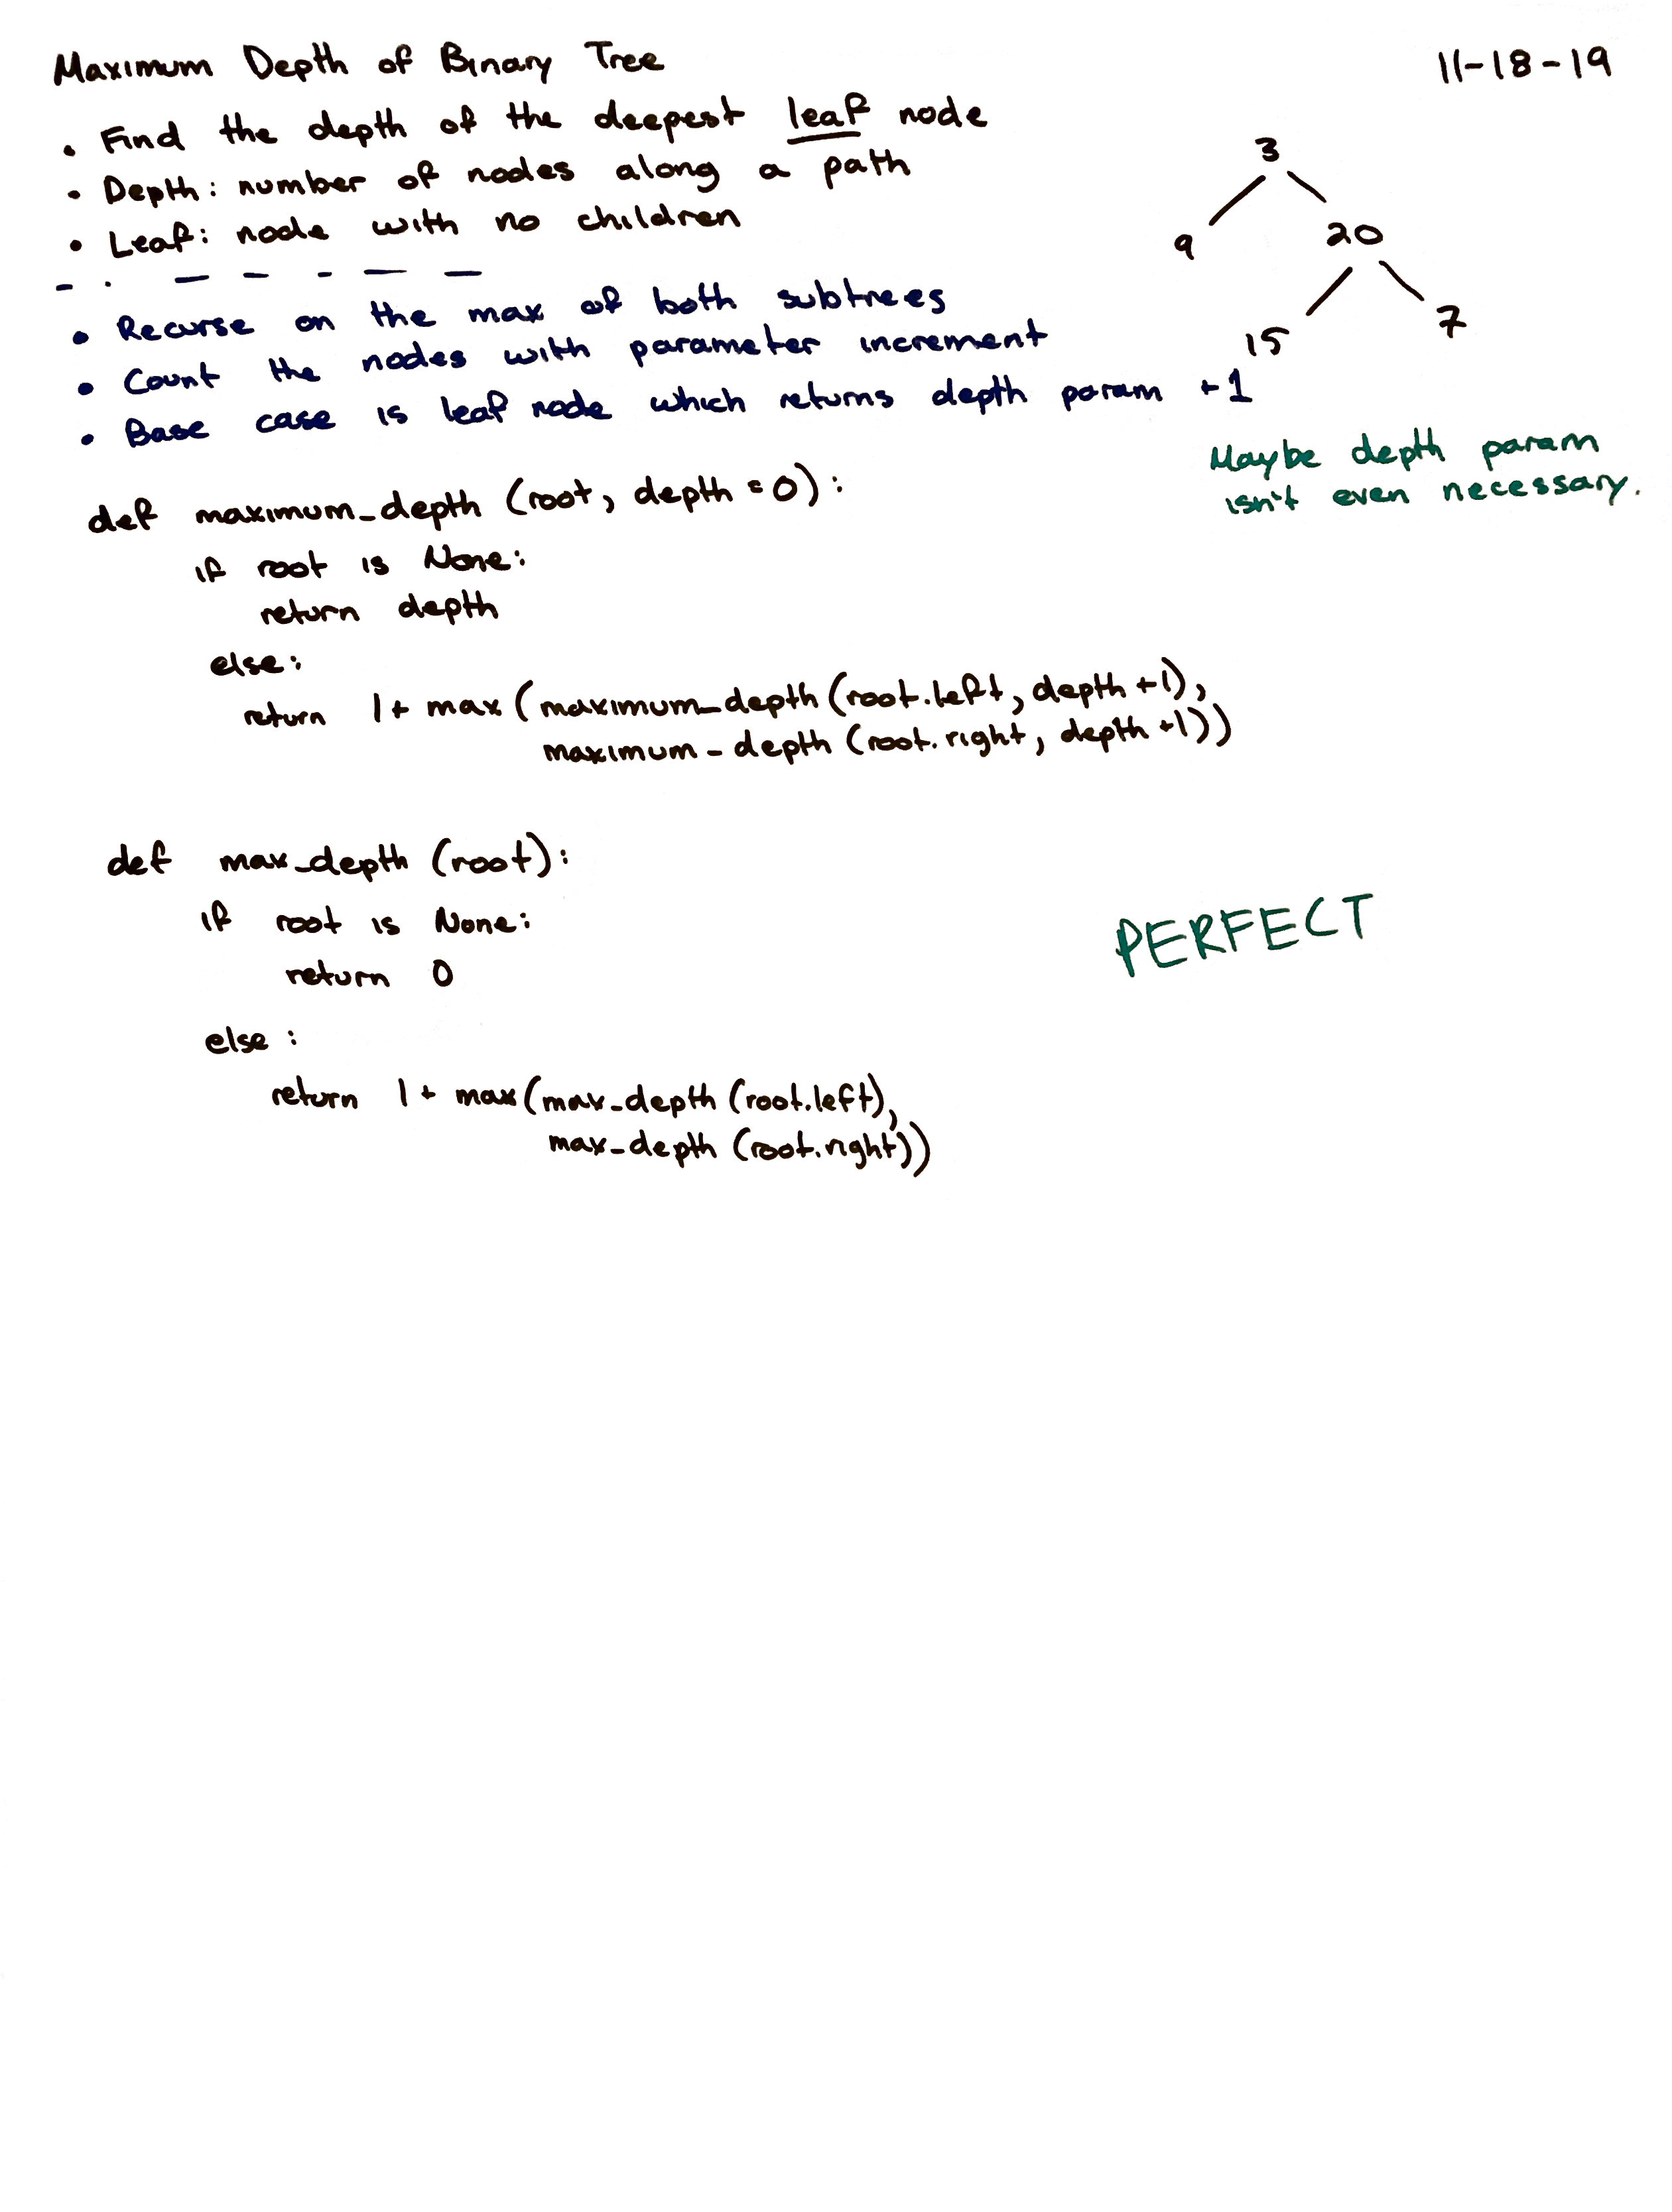 Maximum Depth of Binary Tree
11-18-19
• Find the depth of the deepest leaf node
• Depth: number of nodes along a path
• Leaf: node with no children
3
9 20
15 7
• Recurse on the max of both subtrees
• Count the nodes with parameter increment
• Base case is leaf node which returns depth param +1
Maybe depth param
isn't even necessary.
def maximum_depth (root, depth = 0):
if root is None:
return depth
else:
return 1 + max (maximum_depth (root.left, depth +1),
maximum_depth (root.right, depth +1))
def max_depth (root):
if root is None:
return 0
else :
return 1 + max(max_depth (root.left),
max_depth (root.right))
PERFECT